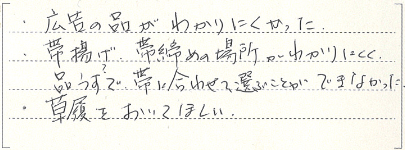 ・広告の品がわかりにくかった.
・帯揚げ.帯締めの場所がわかりにくく.
品うす?で帯に合わせて選ぶことができなかった.
・草履をおいてほしい.